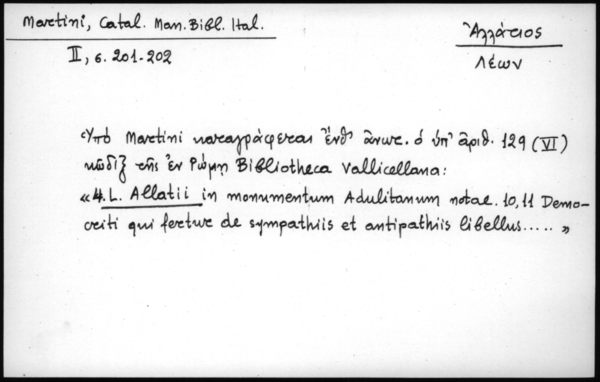 Martini, Catal. Man. Bibl. Ital.
II, σ. 201-202
Ἀλλάτιος
Λέων
Ὑπὸ Martini καταγράφεται ἔνθ' ἄνωτ. ὁ ὑπ' ἀριθ. 129 (VI)
κῶδιξ τῆς ἐν Ρώμῃ Bibliotheca Vallicellana:
«4. L. Allatii in monumentum Adulitanum notae. 10, 11 Demo-
criti qui fertur de sympathiis et antipathiis libellus..... »